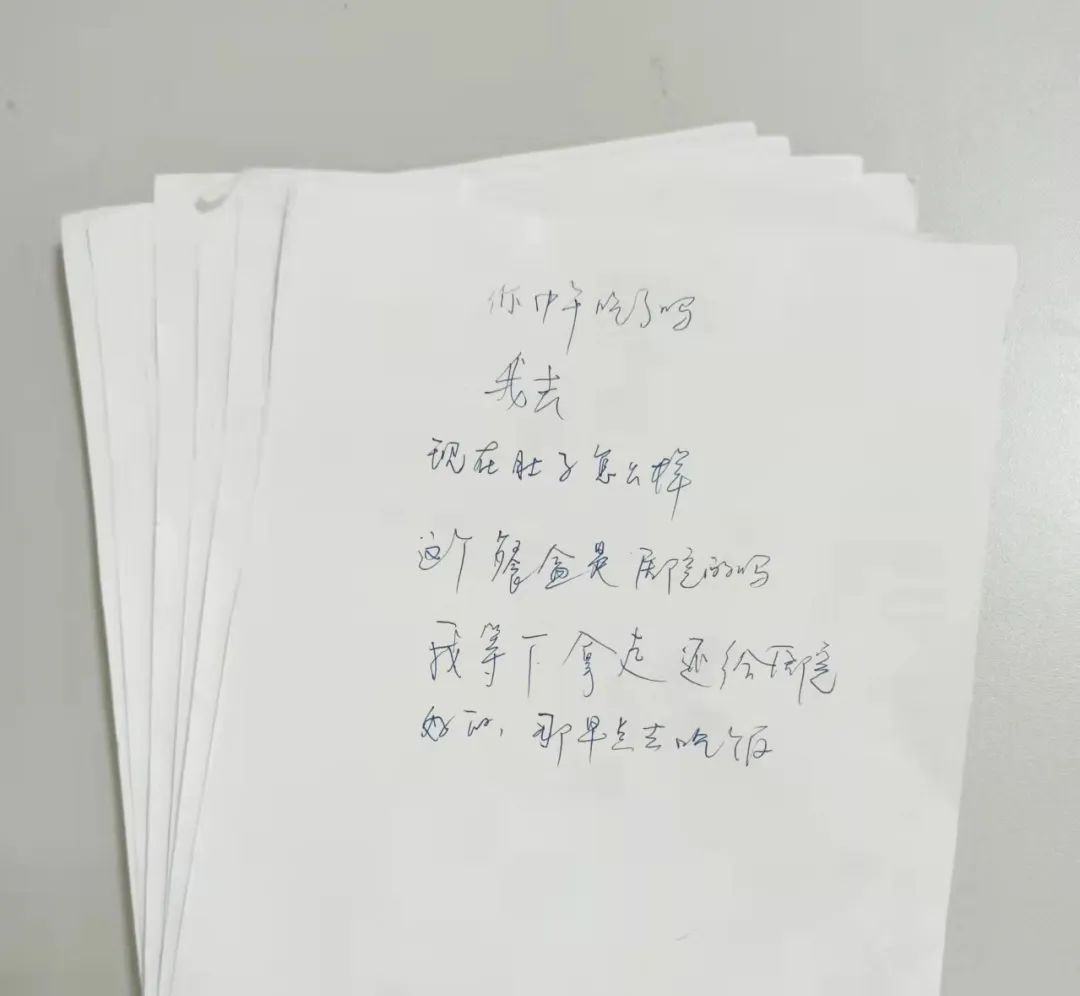 你中午吃了吗
我去
现在肚子怎么样
这个餐盒是剧院的吗
我等下拿走还给剧院
好的，那早点去吃饭